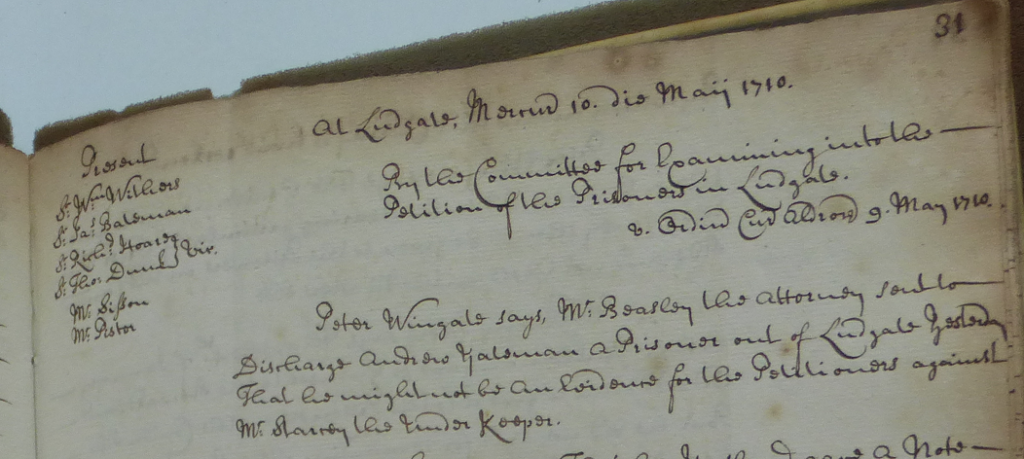 31
At Ludgate, Mercur̄ 10. die Maij 1710.
Present
Sr. Wm. Withers
Sr. Jas. Bateman
Sr. Richd. Hoare
Sr. Tho: Dunk Vic.
Mr. Sisson
Mr. Pistor
By the Committee for Examining into the
Petition of the Prisoners in Ludgate.
v. Ordin Cur Aldrorz 9. May 1710.
Peter Wingate says, Mr. Beasley the Attorney sent to
Discharge Andrew Yateman a Prisoner out of Ludgate Yesterday
That he might not be an Evidence for the Petitioners against
Mr. Starcey the Under Keeper.
a Note